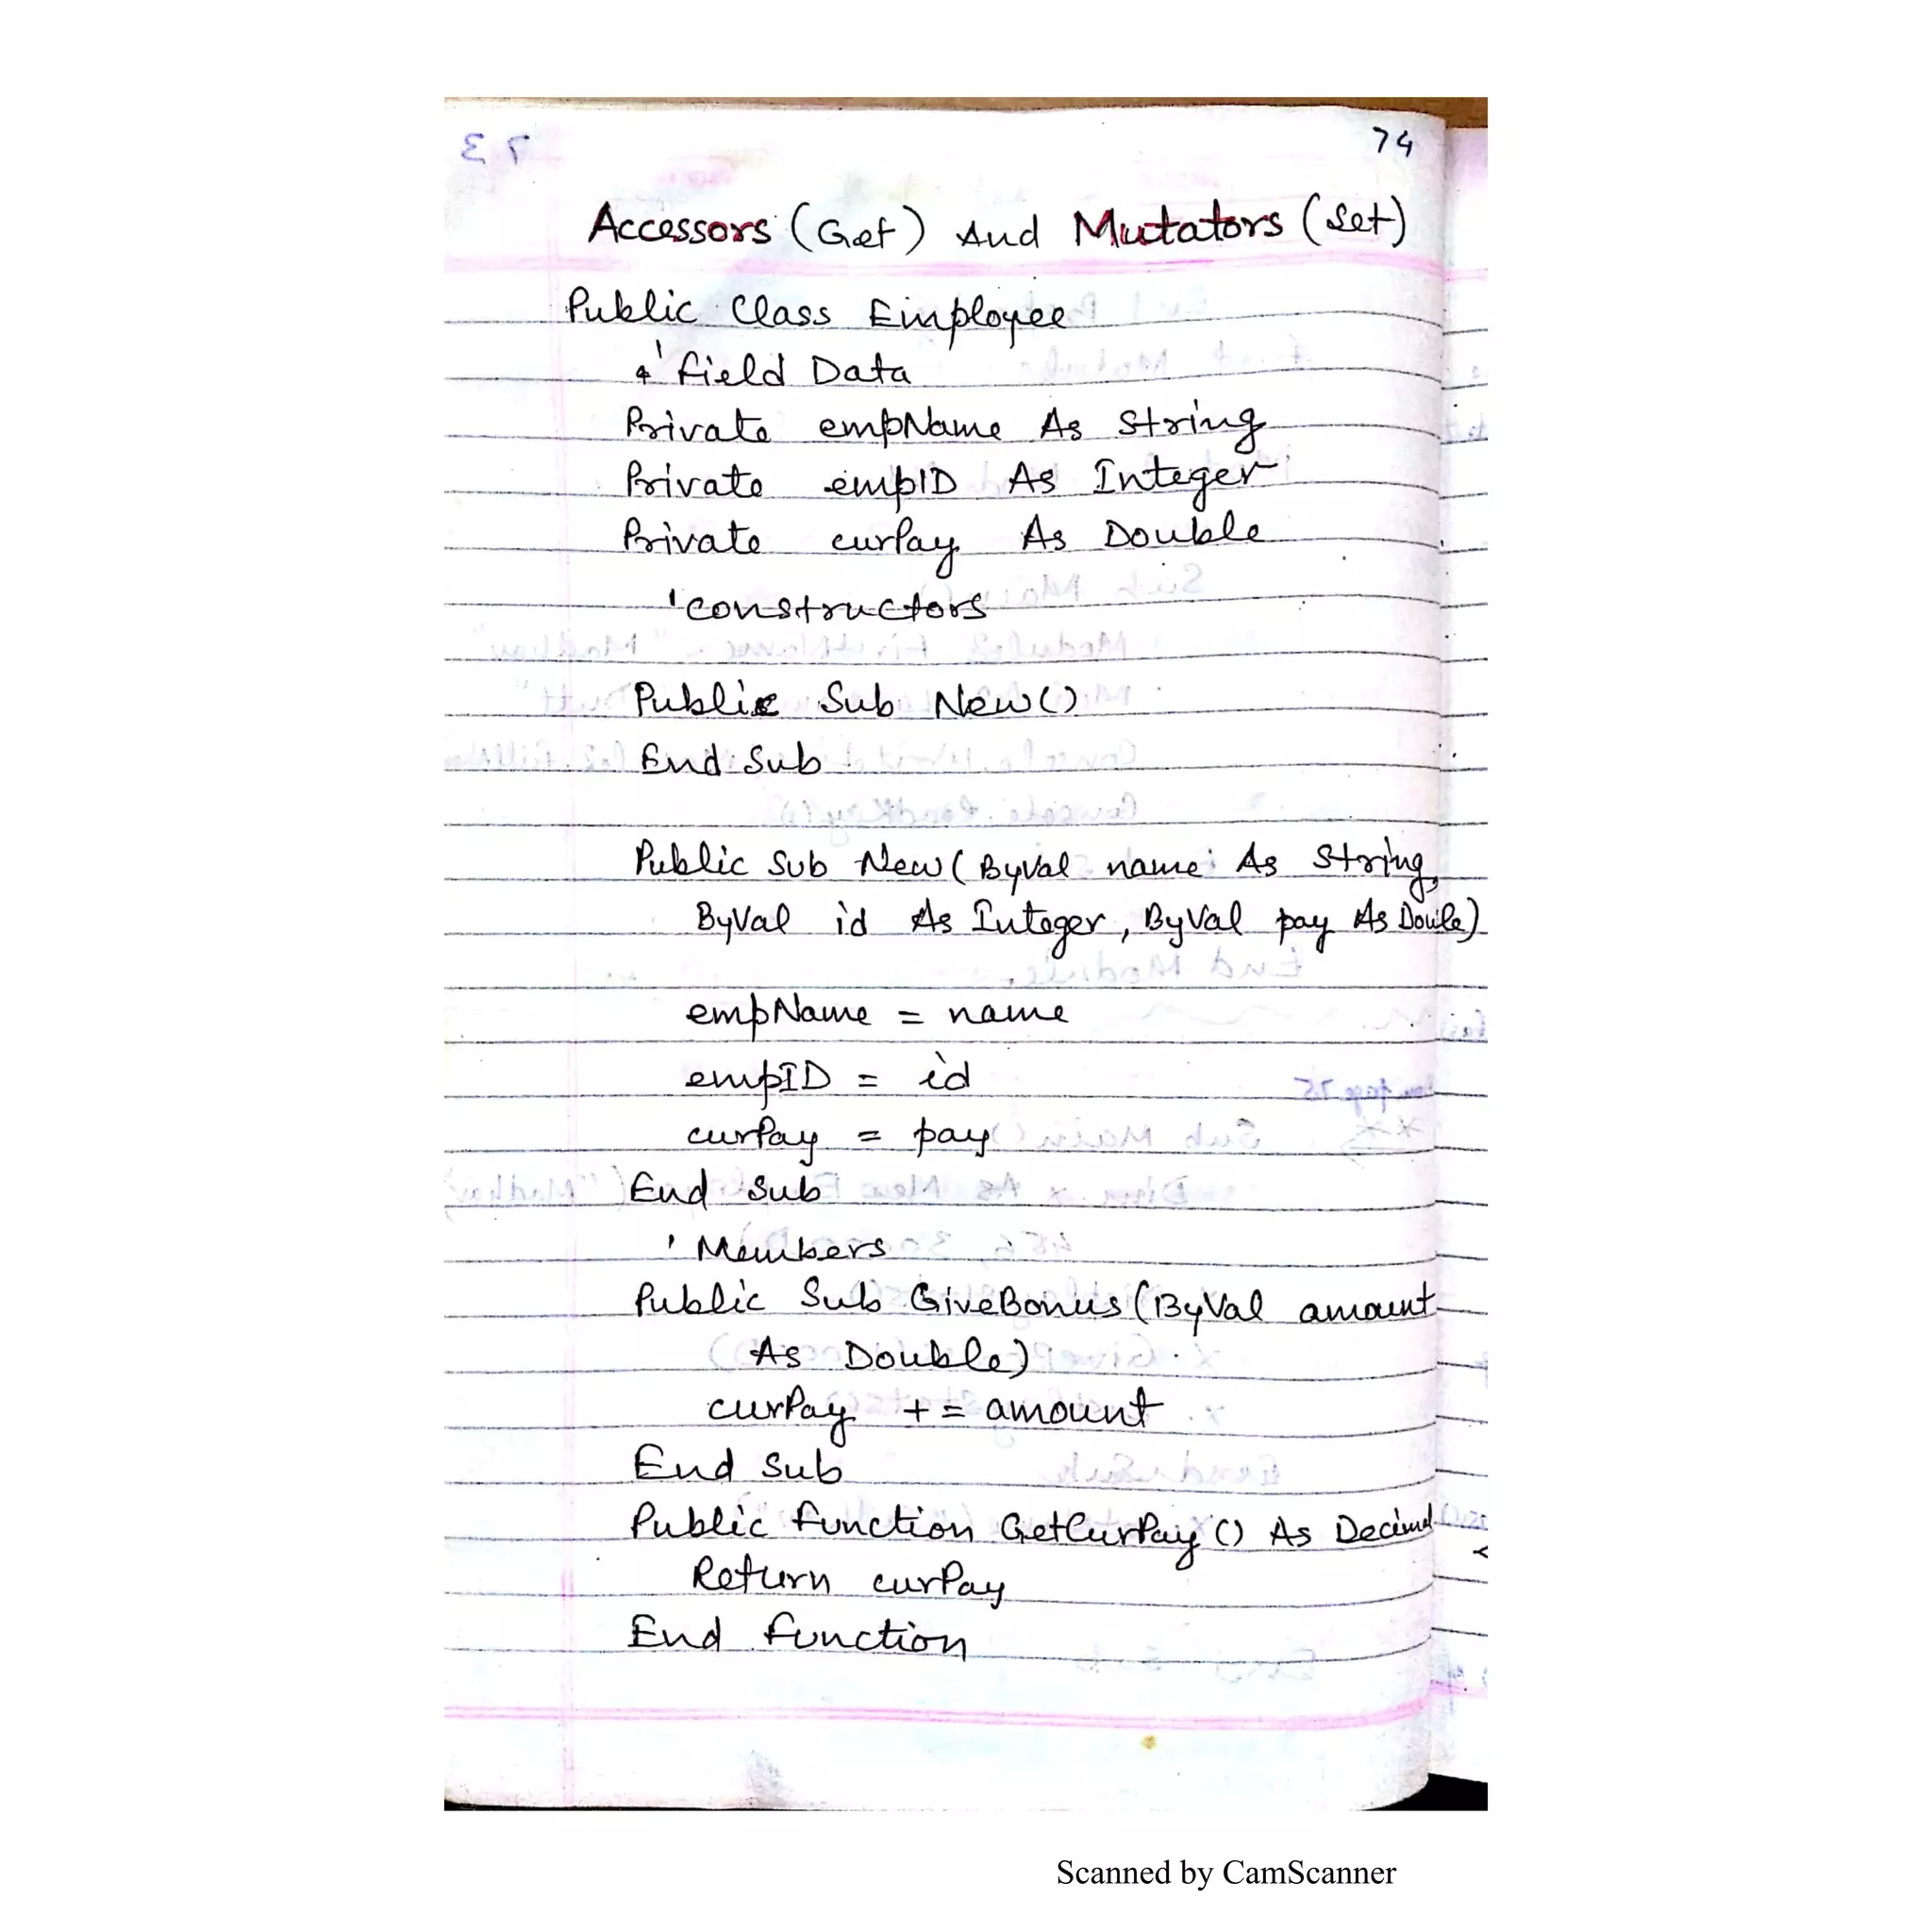 74
Accessors (Get) And Mutators (Set)
Public Class Employee
' Field Data
Private empName As String
Private empID As Integer
Private curPay As Double
' Constructors
Public Sub New()
End Sub
Public Sub New( ByVal name As String,
ByVal id As Integer, ByVal pay As Doule)
empName = name
empID = id
curPay = pay
End Sub
' Members
Public Sub GiveBonus (ByVal amount
As Double)
curPay += amount
End Sub
Public Function GetCurPay () As Decimal
Return curPay
End Function
Scanned by CamScanner